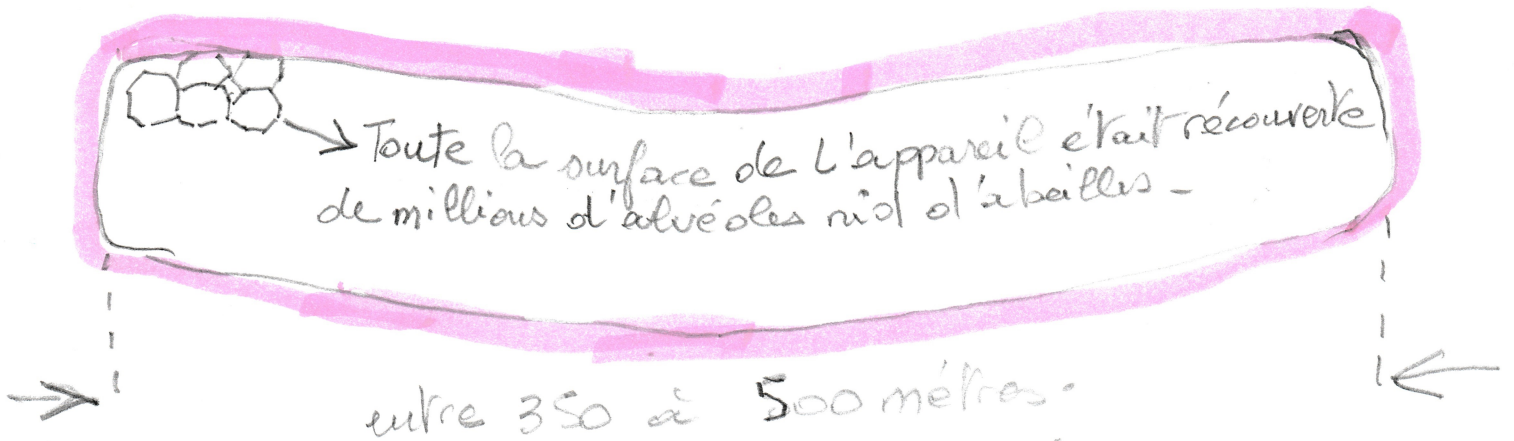 Toute la surface de L'appareil était récouverte
de millions d'alvéoles nid d'abeilles -
entre 350 à 500 métres.